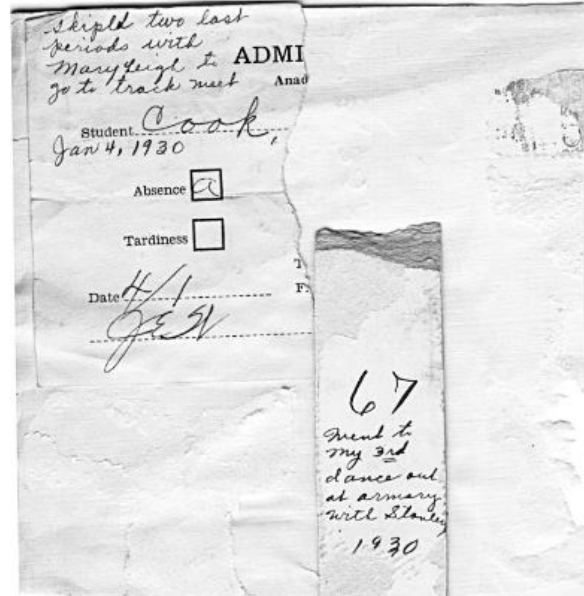 skipld two last
periods with
Mary Leigh to
go to track meet
ADMI
Anad
Student Cook,
Jan 4, 1930
Absence a
Tardiness
T
F
Date 4/1
67
Went to
my 3rd
dance out
at armory
with Stanley
1930